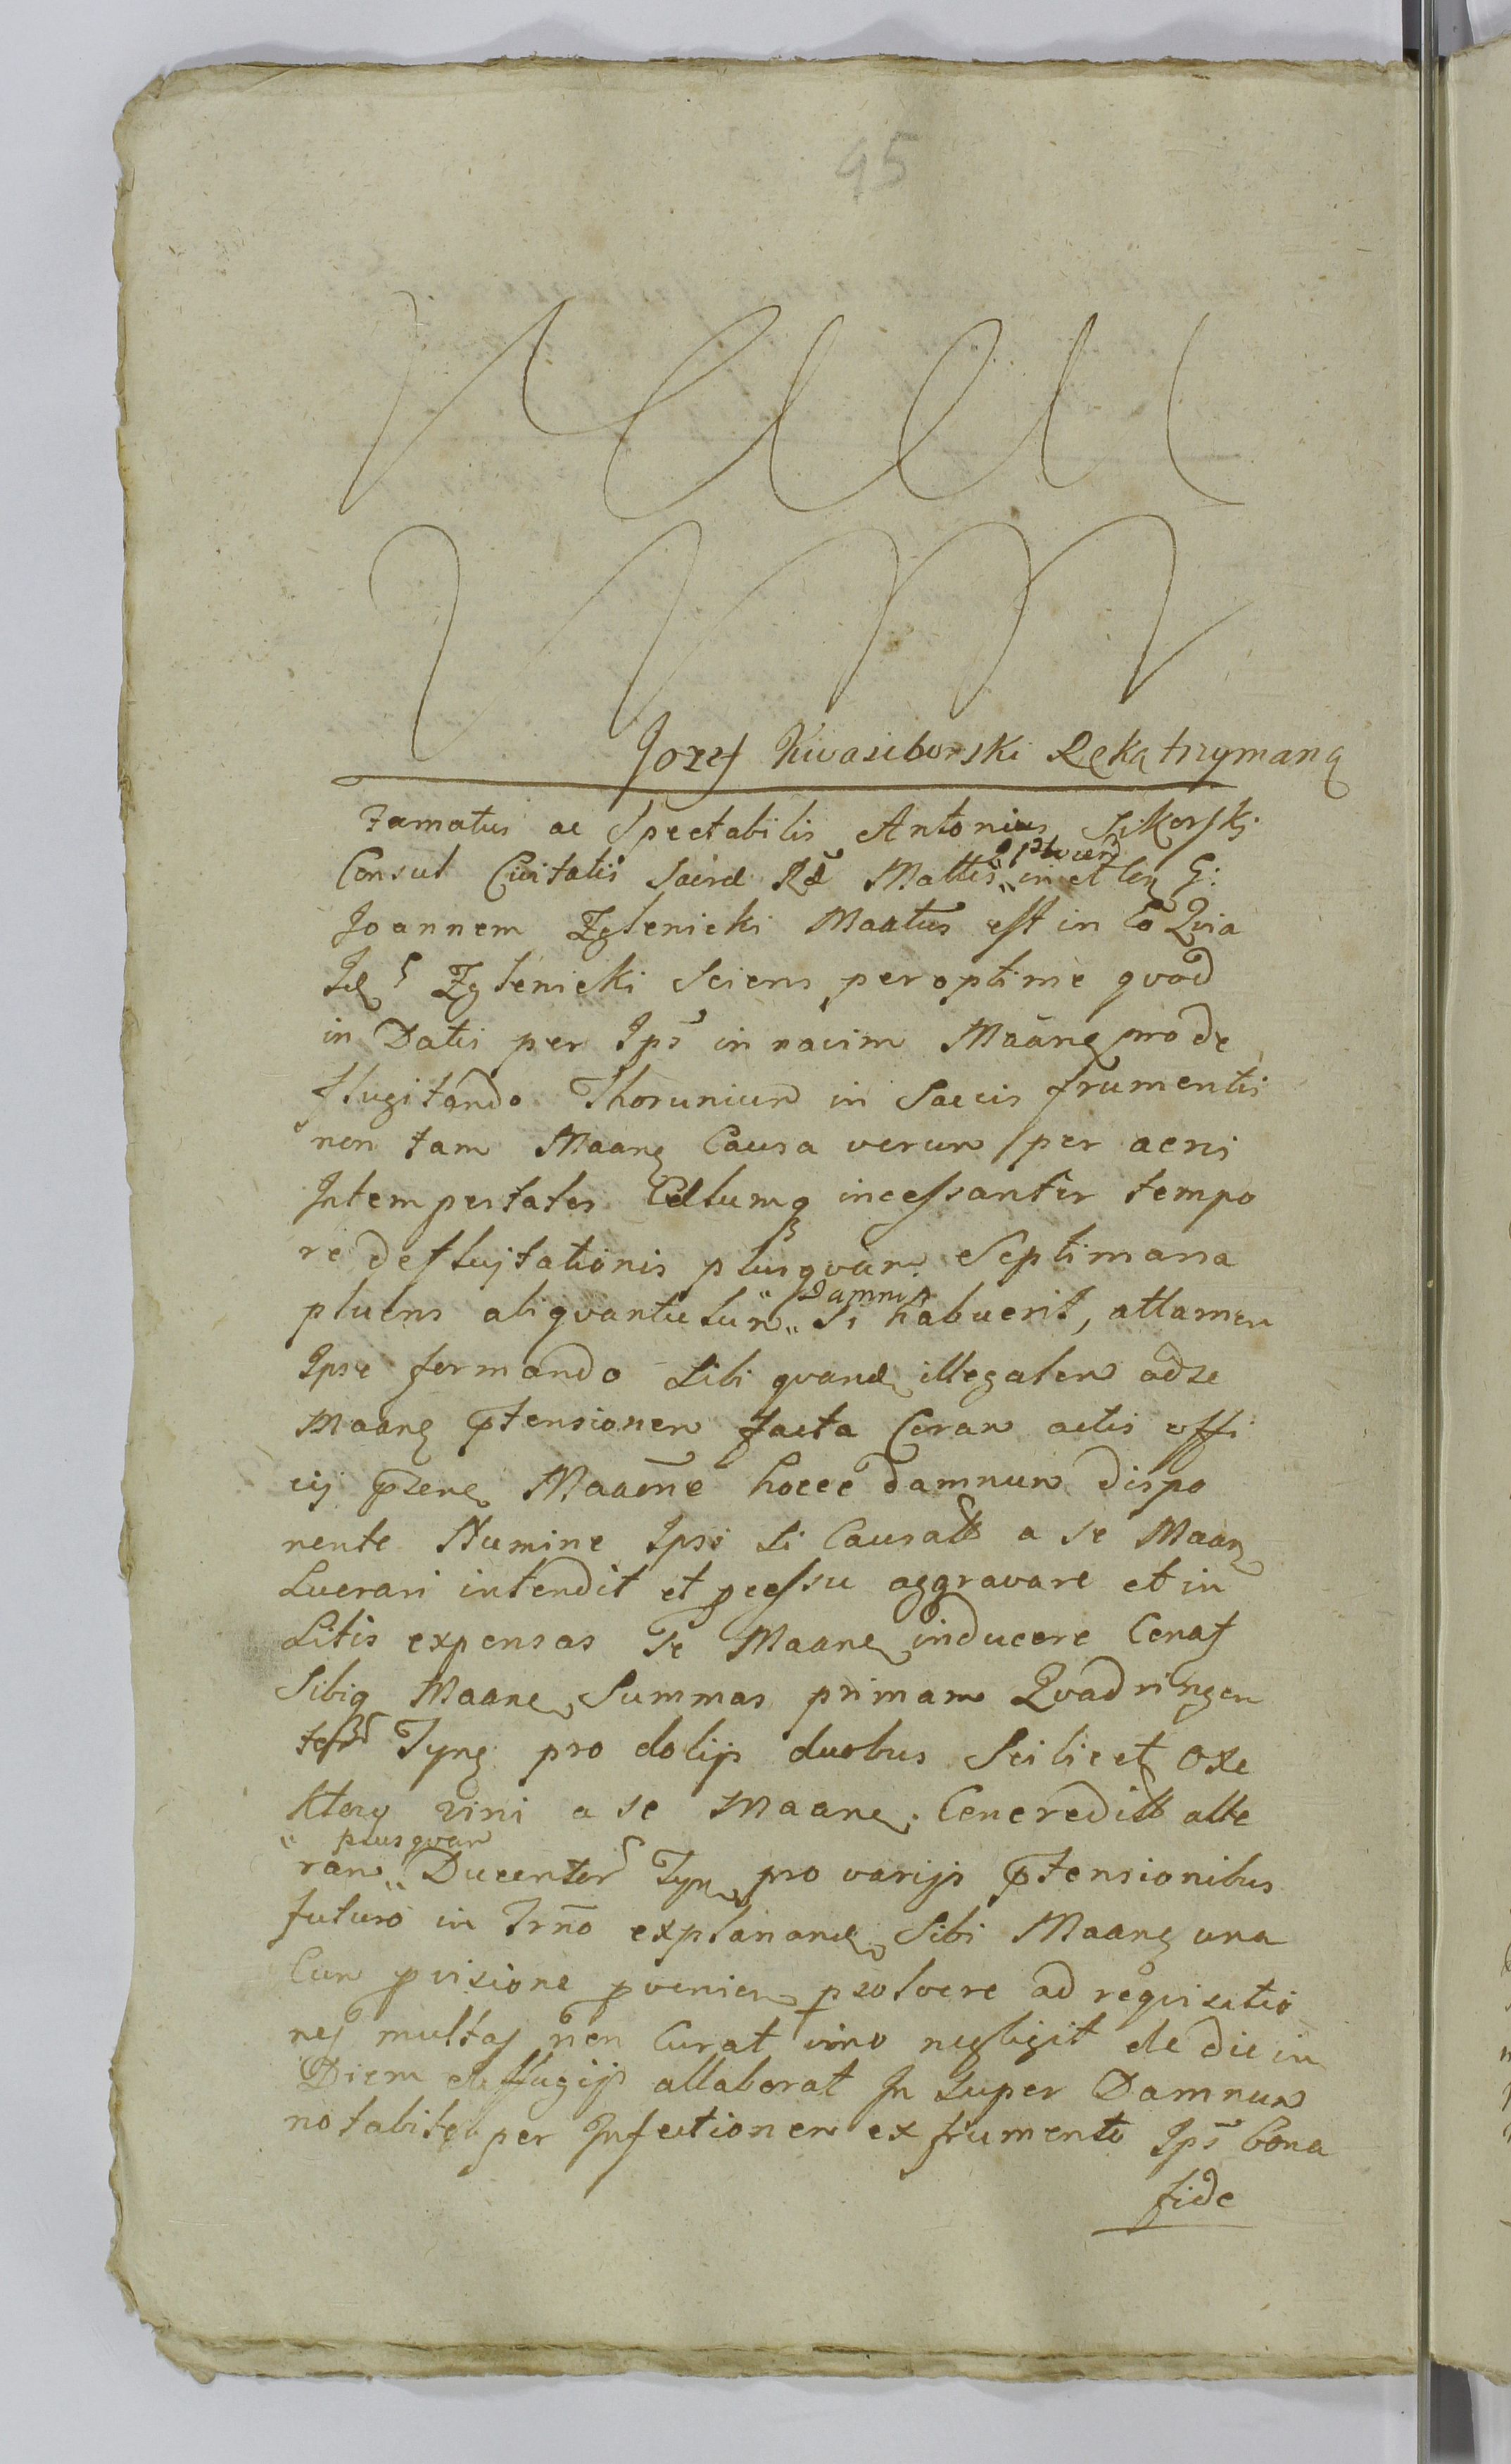 95
Jozef Kwasiborski Ręką trzymaną
Famatus ac Spectabilis Antonius Sikorski
Consul Civitatis Sacræ Ræ Mattis in et con G:
Joannem Zglenicki Maatus est in eo Quia
Zglenicki Sciens peroptime qvod
in Datis per Ips in navim Maane pro de
flugitando Thorunium in Saccis frumentis
non tam Maane Causa verum per aeris
Intempestates Cælumq incessanter tempo
re deflujtationis plusqvam Septimana
Damni
pluens aliqvantulum Si habuerit, attamen
Ipse formando Sibi qvand illegalem adse
Maane ptensionem facta Coram actis offi
cij Maaone hocce damnum dispo
nente Numine Ipsi Si Causatt a se Maan
Lucrari intendit et pcessu aggravare et in
Litis expensas Se Maane inducere Conat
Sibiq Maane Summas primam Qvadringen
Tyne pro dolijs duobus Scilicet Oxe
ktory vini a se Maane Concreditt alte
plusqvam
ram Ducentor Tyn pro varijs ptensionibus
futuro in Trno expland Sibi Maane una
Cum pvisione pvenien psolvere ad reqvisitio
nes multas non Curat imo negligit de die in
Diem effugijs allaborat In Super Damnum
notabile per Infectionem ex frumento Ips bona
fide